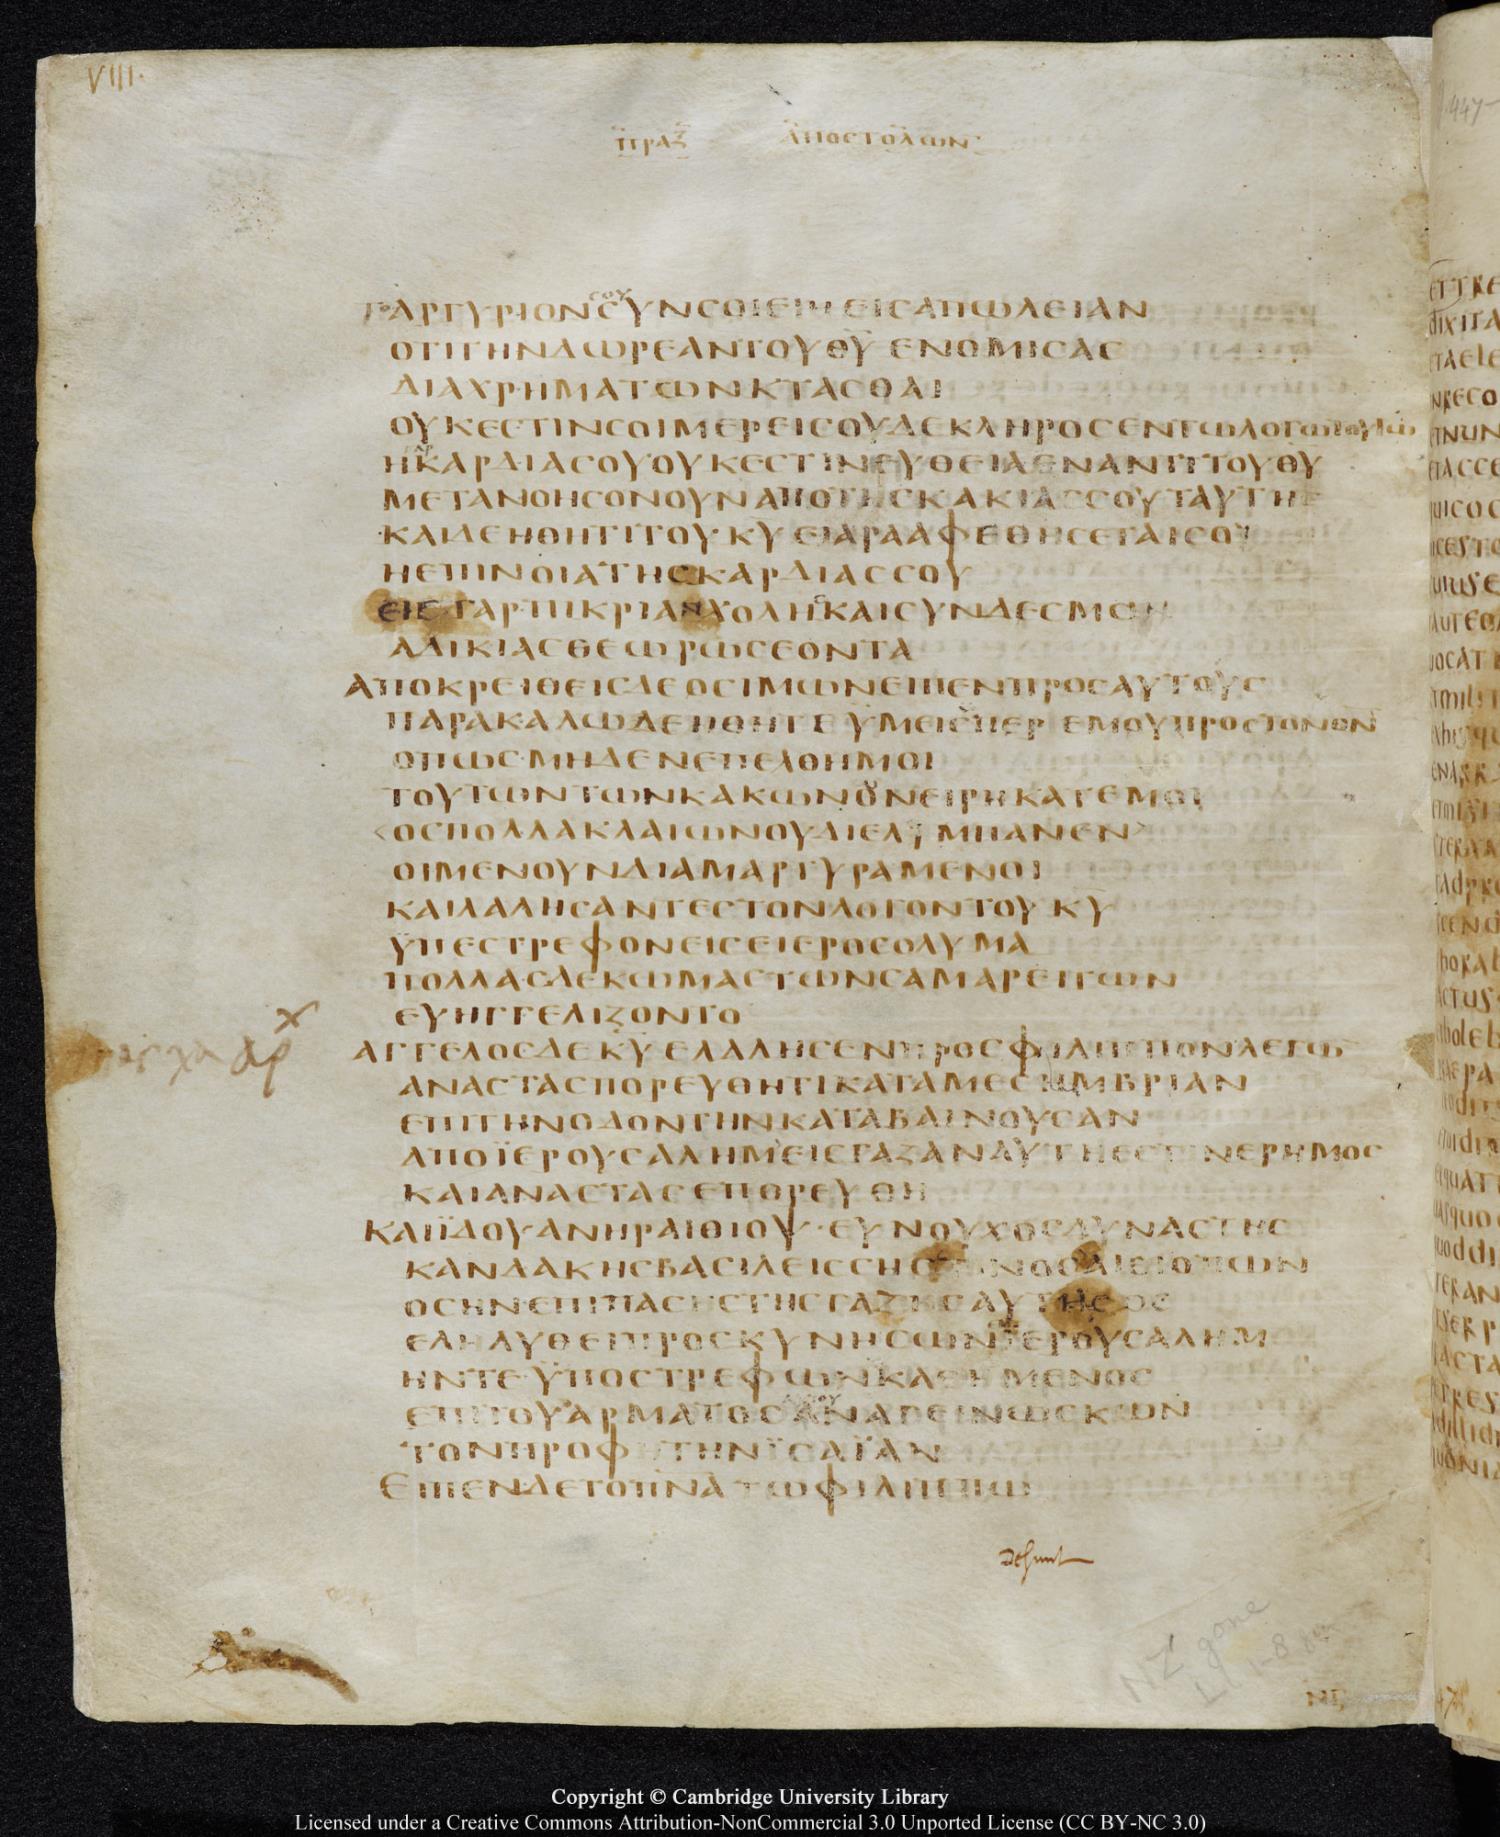 VIII.
ΠΡΑΞ ΑΠΟΣΤΟΛΩΝ
ΤΟΑΡΓΥΡΙΟΝϹΟΥΥΝϹΟΙΕΙΗΕΙϹΑΠΩΛΕΙΑΝ
ΟΤΙΤΗΝΔΩΡΕΑΝΤΟΥΘΥ ΕΝΟΜΙϹΑϹ
ΔΙΑΧΡΗΜΑΤΩΝΚΤΑϹΘΑΙ
ΟΥΚΕϹΤΙΝϹΟΙΜΕΡΕΙϹΟΥΔΕΚΛΗΡΟϹΕΝΤΩΛΟΓΩΤΟΥΤΩ
ΗΚΑΡΔΙΑϹΟΥΟΥΚΕϹΤΙΝΕΥΘΕΙΑΕΝΑΝΤΙΤΟΥΘΥ
ΜΕΤΑΝΟΗϹΟΝΟΥΝΑΠΟΤΗϹΚΑΚΙΑϹϹΟΥΤΑΥΤΗϹ
ΚΑΙΔΕΗΘΗΤΙΤΟΥΚΥ ΕΙΑΡΑΑΦΕΘΗϹΕΤΑΙϹΟΥ
ΗΕΠΙΝΟΙΑΤΗϹΚΑΡΔΙΑϹϹΟΥ
ΕΙϹΓΑΡΠΙΚΡΙΑΝΧΟΛΗϹΚΑΙϹΥΝΔΕϹΜΩΝ
ΑΔΙΚΙΑϹΘΕΩΡΩϹΕΟΝΤΑ
ΑΠΟΚΡΕΙΘΕΙϹΔΕΟϹΙΜΩΝΕΙΠΕΝΠΡΟϹΑΥΤΟΥϹ
ΠΑΡΑΚΑΛΩΔΕΗΘΗΤΕΥΜΕΙϹΠΕΡ ΕΜΟΥΠΡΟϹΤΟΝΘΝ
ΟΠΩϹΜΗΔΕΝΕΠΕΛΘΗΜΟΙ
ΤΟΥΤΩΝΤΩΝΚΑΚΩΝΩΝΕΙΡΗΚΑΤΕΜΟΙ
ΟϹΠΟΛΛΑΚΛΑΙΩΝΟΥΔΙΕΛΥΜΠΑΝΕΝ
ΟΙΜΕΝΟΥΝΔΙΑΜΑΡΤΥΡΑΜΕΝΟΙ
ΚΑΙΛΑΛΗϹΑΝΤΕϹΤΟΝΛΟΓΟΝΤΟΥ ΚΥ
ΫΠΕϹΤΡΕΦΟΝΕΙϹΕΙΕΡΟϹΟΛΥΜΑ
ΠΟΛΛΑϹΔΕΚΩΜΑϹΤΩΝϹΑΜΑΡΕΙΤΩΝ
ΕΥΗΓΓΕΛΙΖΟΝΤΟ
ΑΓΓΕΛΟϹΔΕΚΥ ΕΛΑΛΗϹΕΝΠΡΟϹΦΙΛΙΠΠΟΝΛΕΓΩ
ΑΝΑϹΤΑϹΠΟΡΕΥΘΗΤΙΚΑΤΑΜΕϹΗΜΒΡΙΑΝ
ΕΠΙΤΗΝΟΔΟΝΤΗΝΚΑΤΑΒΑΙΝΟΥϹΑΝ
ΑΠΟΪΕΡΟΥϹΑΛΗΜΕΙϹΓΑΖΑΝΑΥΤΗΕϹΤΙΝΕΡΗΜΟϹ
ΚΑΙΑΝΑϹΤΑϹΕΠΟΡΕΥΘΗ
ΚΑΙΪΔΟΥΑΝΗΡΑΙΘΙΟΨ·ΕΥΝΟΥΧΟϹΔΥΝΑϹΤΗϹ
ΚΑΝΔΑΚΗϹΒΑϹΙΛΕΙϹϹΗϹΤΙΝΟϹΑΙΕΙΟΠΩΝ
ΟϹΗΝΕΠΙΠΑϹΗϹΤΗϹΓΑΖΗϹΑΥΤΗϹΟϹ
ΕΛΗΛΥΘΕΙΠΡΟϹΚΥΝΗϹΩΝΪΕΡΟΥϹΑΛΗΜ
ΗΝΤΕΫΠΟϹΤΡΕΦΩΝΚΑΘΗΜΕΝΟϹ
ΕΠΙΤΟΥΑΡΜΑΤΟϹΑΝΑΓΕΙΝΩϹΚΩΝ
ΤΟΝΠΡΟΦΗΤΗΝΪϹΑΪΑΝ
ΕΙΠΕΝΔΕΤΟΠΝΑ ΤΩΦΙΛΙΠΠΩ
desunt
NZ gone